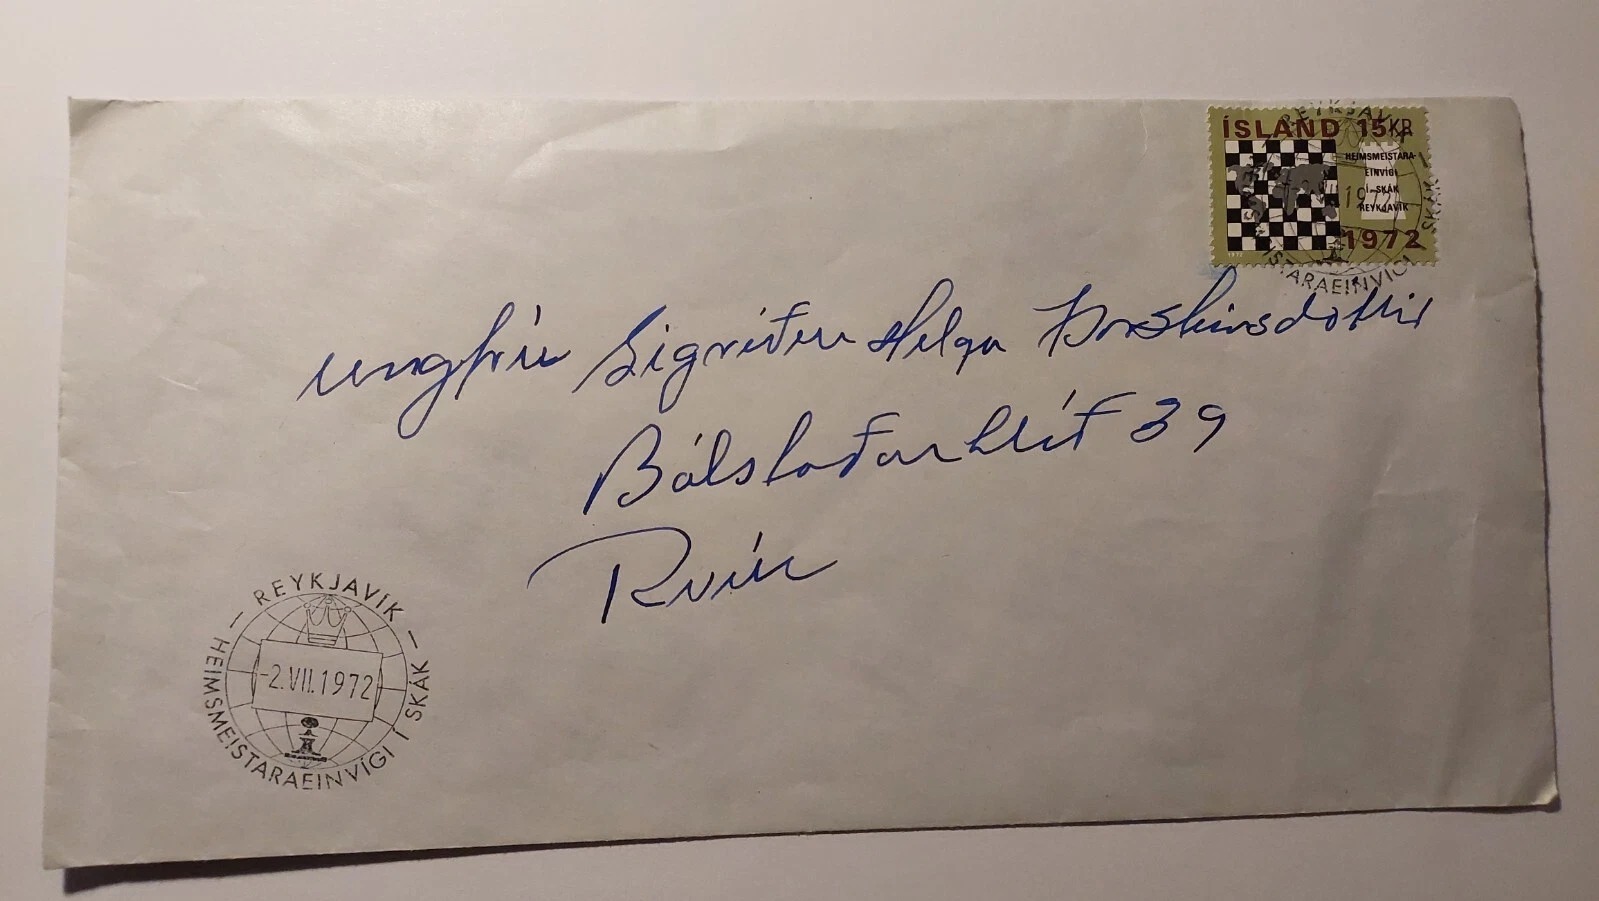 ÍSLAND 15KR
HEIMSMEISTARA-
EINVÍGI
Í SKÁK
REYKJAVÍK
1972
1972
REYKJAVÍK
HEIMSMEISTARAEINVÍGI Í SKÁK
ungfrú Sigríður Helga Þorsteinsdóttir
Bólstaðarhlíð 39
Rvík
REYKJAVÍK
-2.VII.1972
HEIMSMEISTARAEINVÍGI Í SKÁK